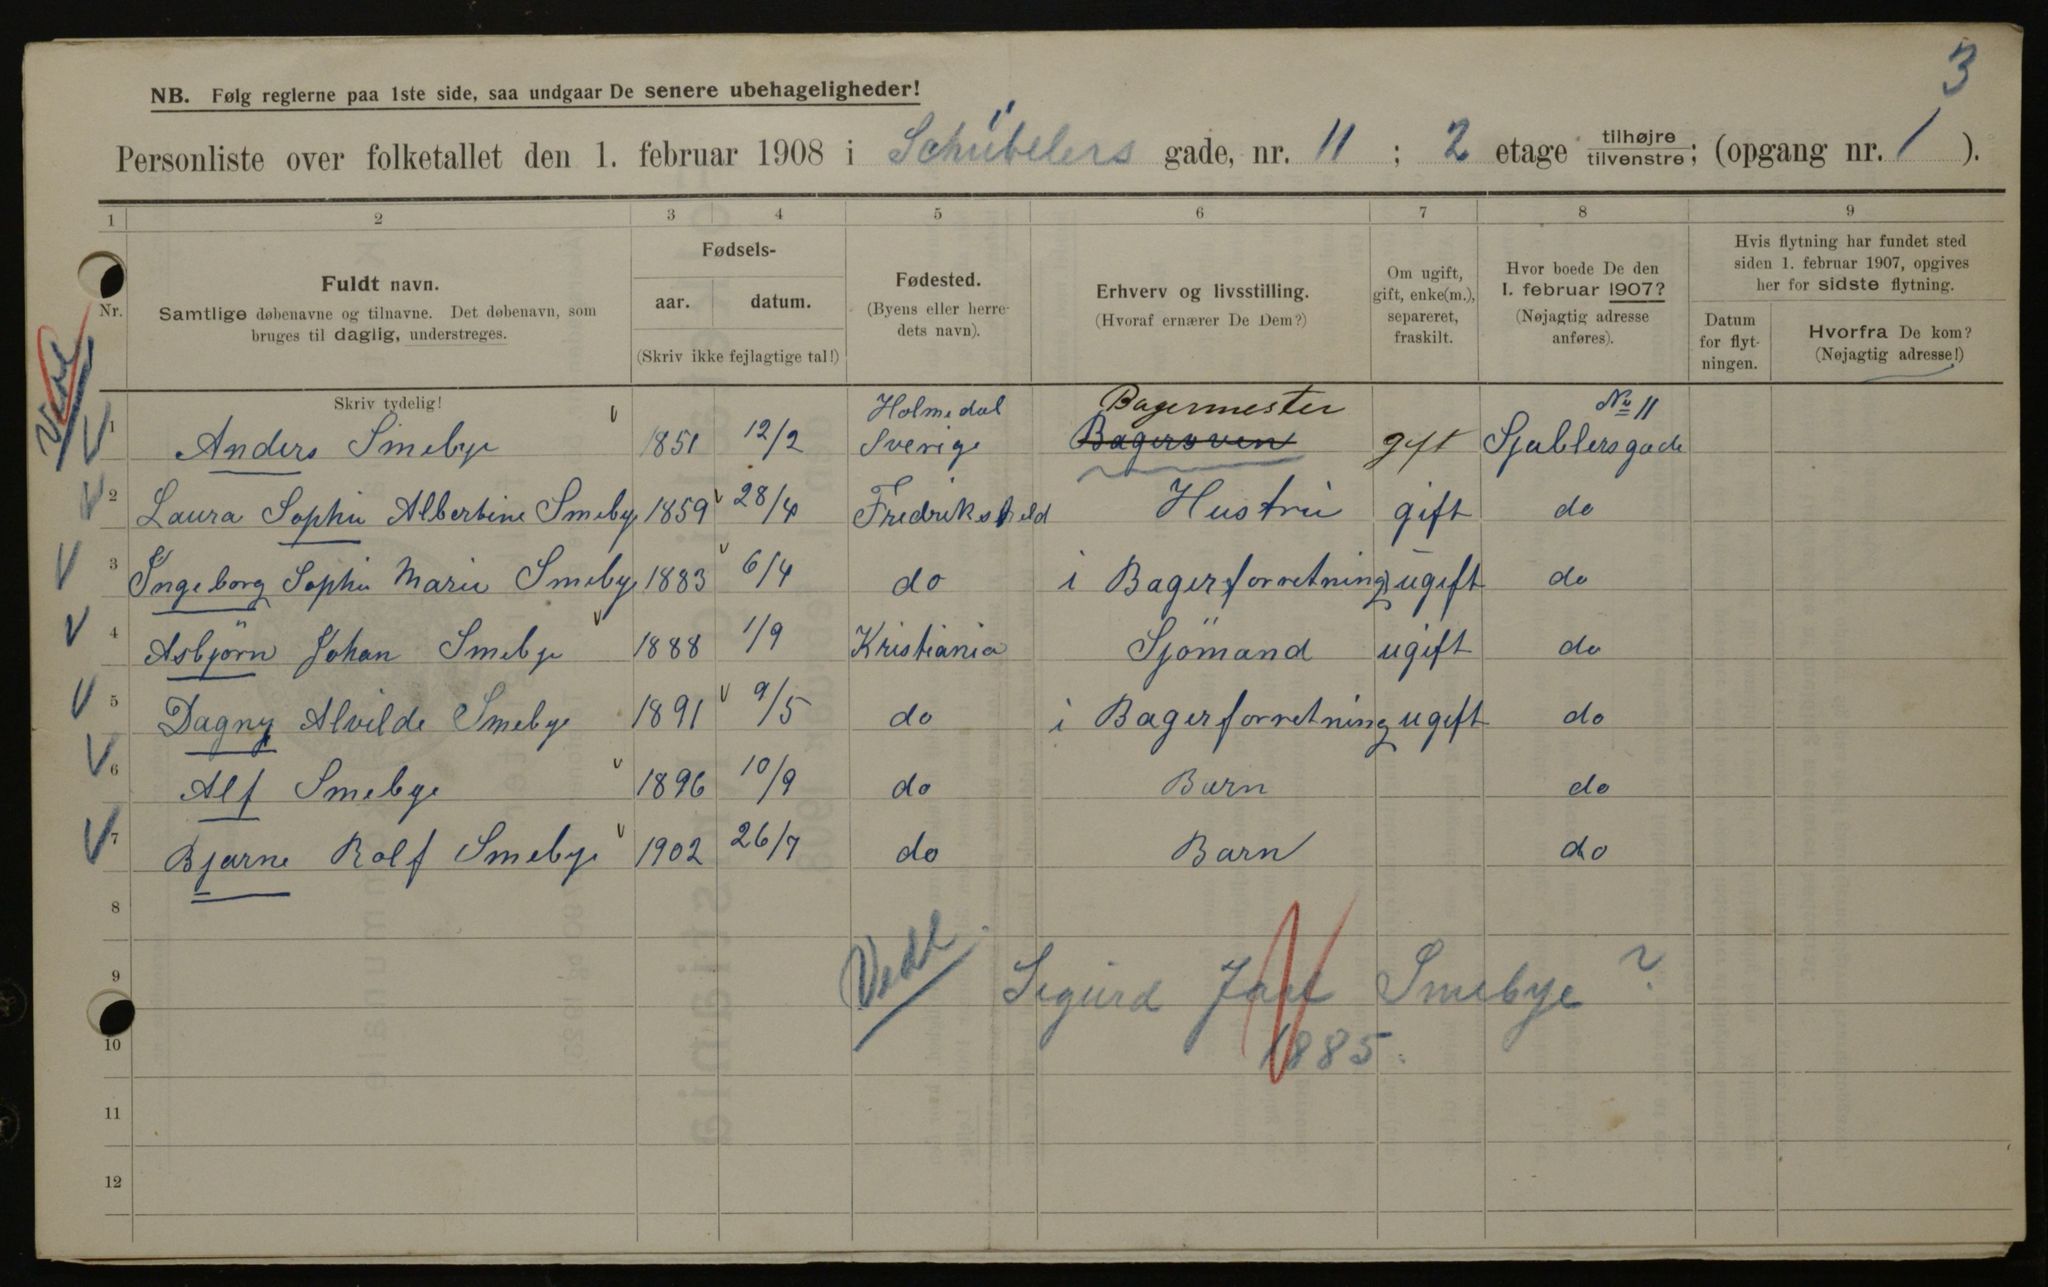 3
NB. Følg reglerne paa 1ste side, saa undgaar De senere ubehageligheder!
Personliste over folketallet den 1. februar 1908 i Schübelers gade, nr. 11 ; 2 etage tilhøjre/tilvenstre; (opgang nr. 1 ).
1 2 3 4 5 6 7 8 9
Nr.
Fuldt navn.
Samtlige døbenavne og tilnavne. Det døbenavn, som
bruges til daglig, understreges.
Fødsels-
aar. datum.
(Skriv ikke fejlagtige tal!)
Fødested.
(Byens eller herre-
dets navn).
Erhverv og livsstilling.
(Hvoraf ernærer De Dem?)
Om ugift,
gift, enke(m.),
separeret,
fraskilt.
Hvor boede De den
1. februar 1907?
(Nøjagtig adresse
anføres).
Hvis flytning har fundet sted
siden 1. februar 1907, opgives
her for sidste flytning.
Datum
for flyt-
ningen.
Hvorfra De kom?
(Nøjagtig adresse!)
Skriv tydelig!
Holmedal Bagermester No 11
1 Anders Smebye 1851 12/2 Sverige Bagersven gift Sjublersgade
2 Laura Sophie Albertine Smebye 1859 28/4 Fredrikshald Hustru gift do
3 Ingeborg Sophie Marie Smebye 1883 6/4 do i Bagerforretning ugift do
4 Asbjörn Johan Smebye 1888 1/9 Kristiania Sjömand ugift do
5 Dagny Alvilde Smebye 1891 9/5 do i Bagerforretning ugift do
6 Alf Smebye 1896 10/9 do Barn do
7 Bjarne Rolf Smebye 1902 26/7 do Barn do
8
9 Sigurd Smebye ?
10 1885.
11
12